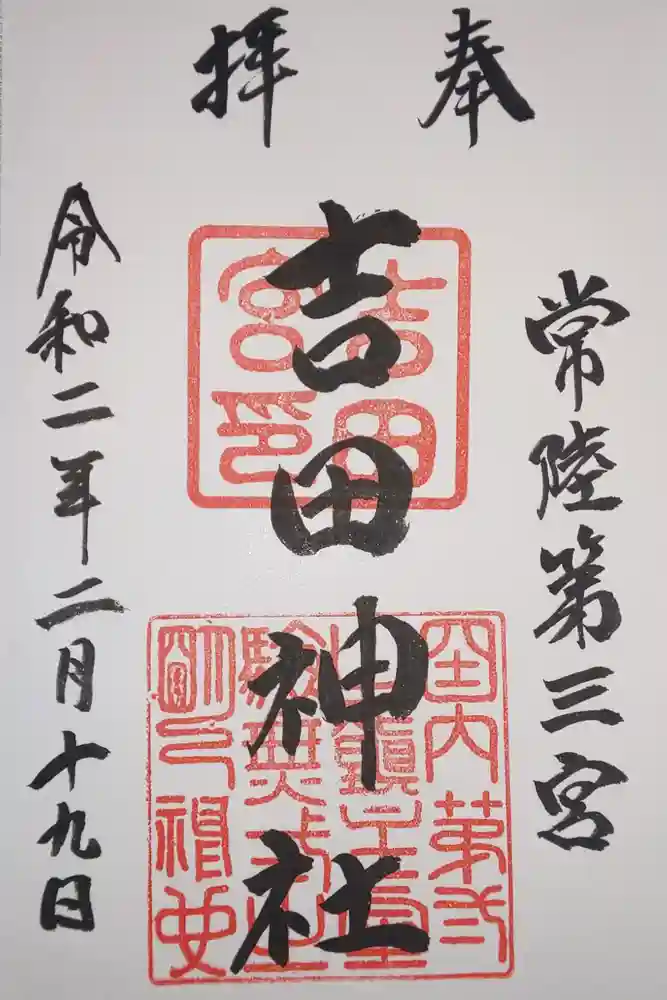 奉拝
常陸第三宮
吉田神社
令和二年二月十九日
吉田
宮印